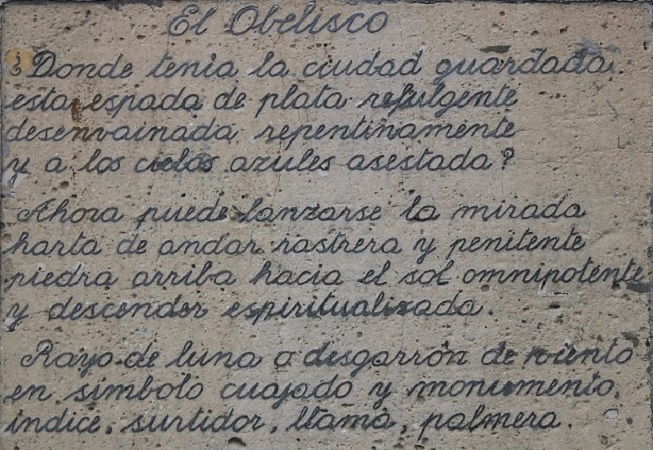 El Obelisco
¿Donde tenia la ciudad guardada
esta espada de plata refulgente
desenvainada repentinamente
y a los cielos azules asestada?
Ahora puede lanzarse la mirada
harta de andar rastrera y penitente
piedra arriba hacia el sol omnipotente
y descender espiritualizada.
Rayo de luna o desgarrón de viento
en símbolo cuajado y monumento,
índice, surtidor, llama, palmera.